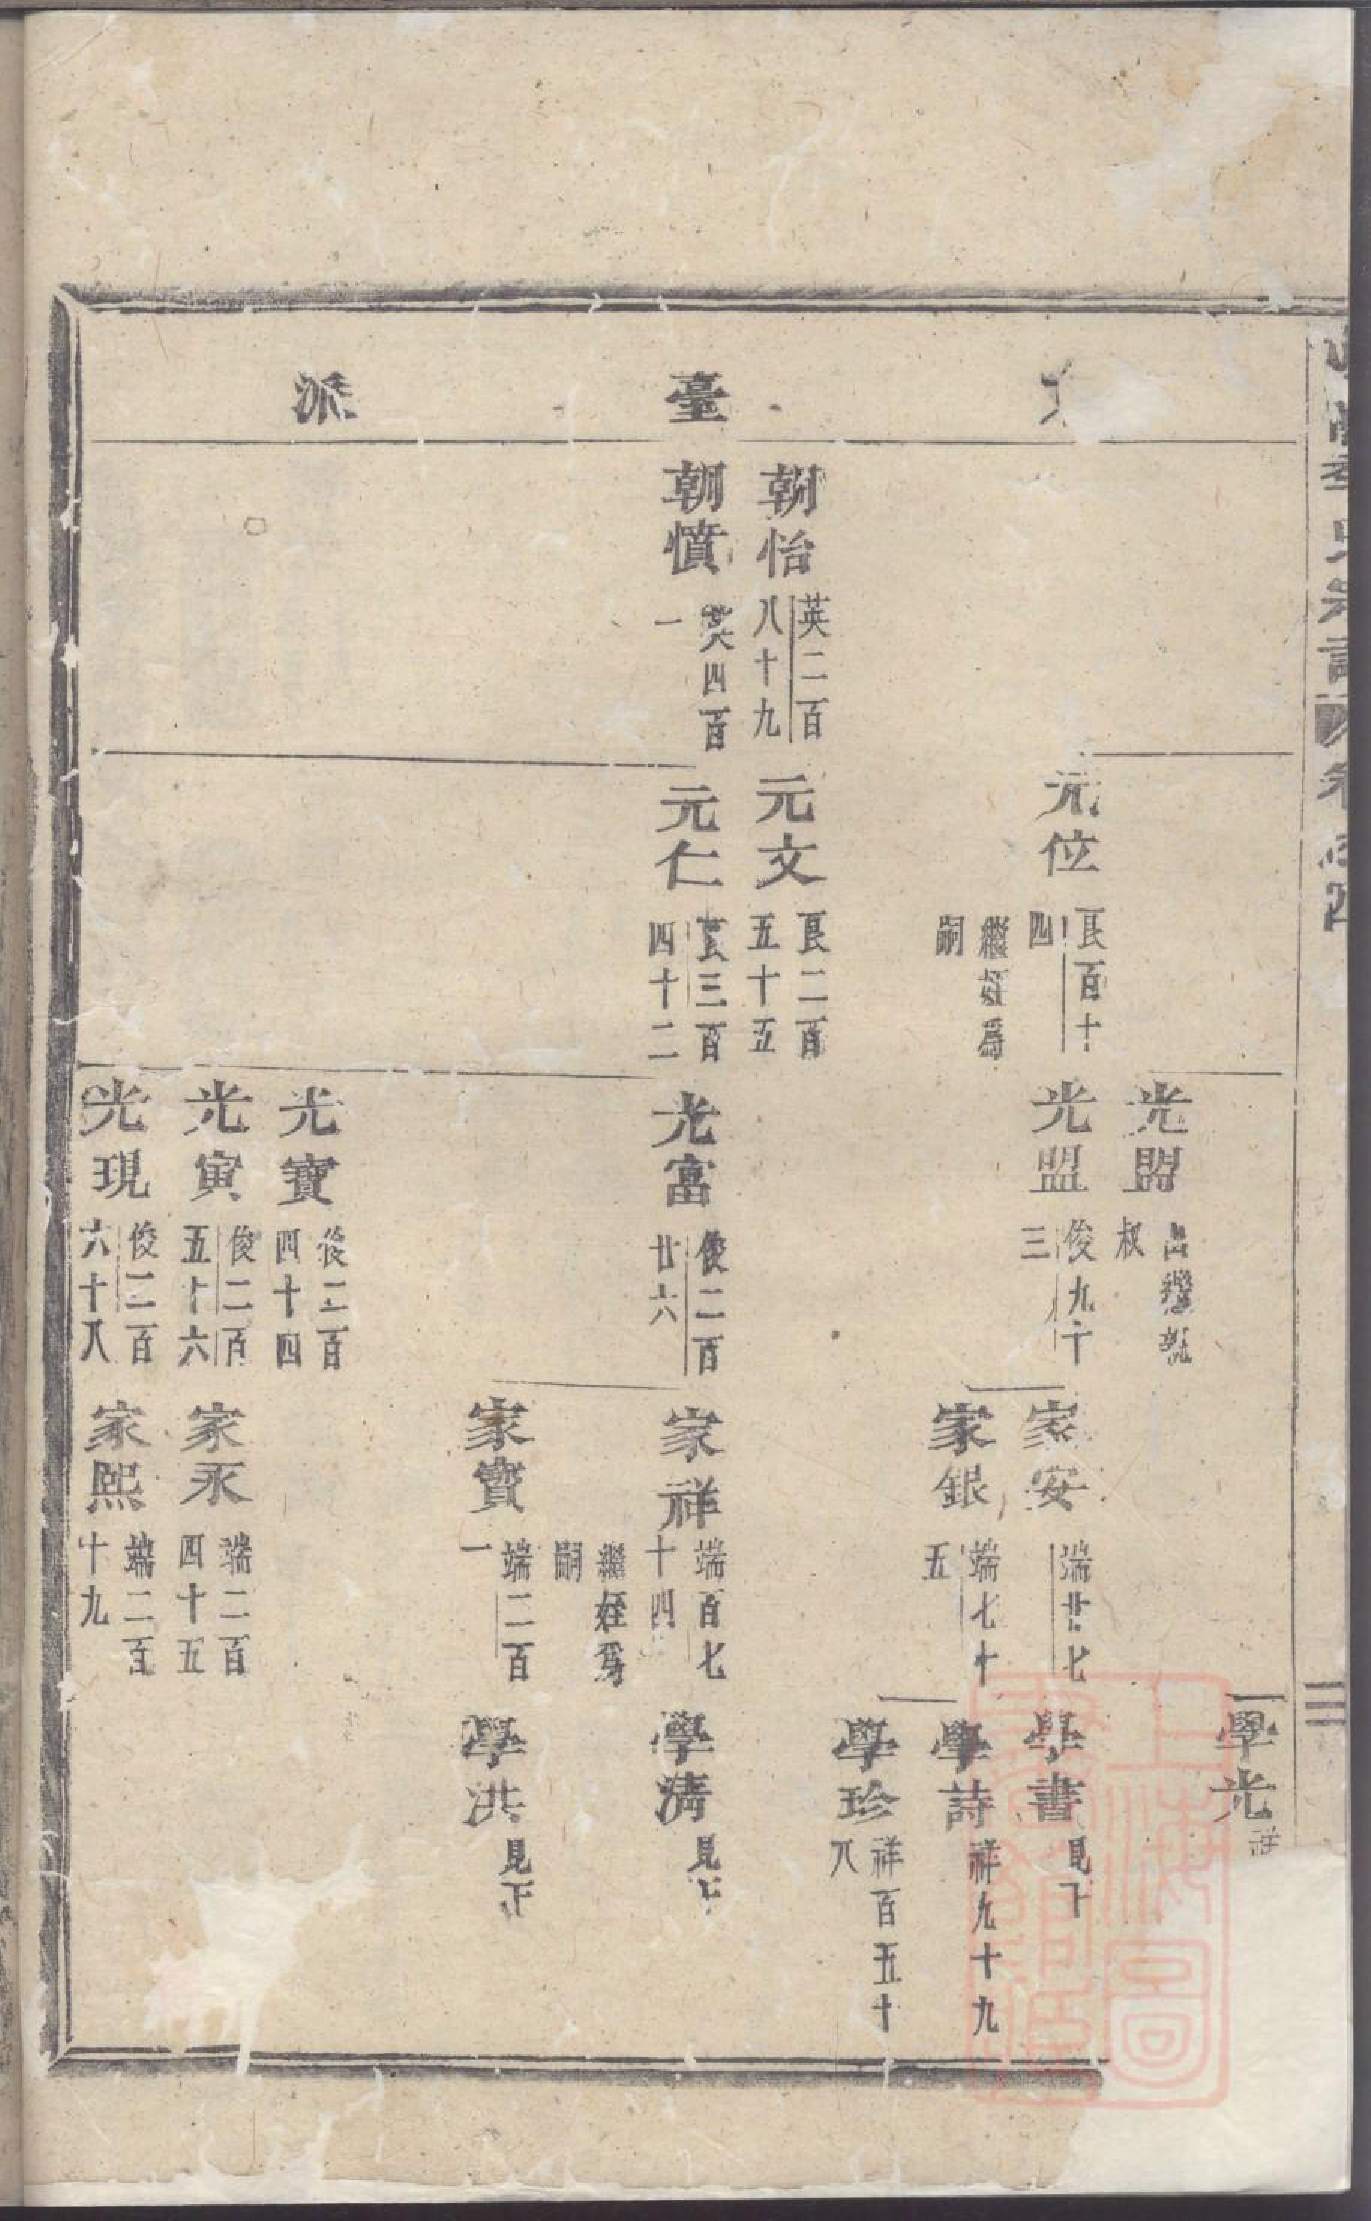 臺
派
朝怡
英二百
八十九
朝憤
英四百
一
元位
良百十
四
繼姪爲
嗣
元文
良二百
五十五
元仁
良三百
四十二
光盟
出繼
叔
光盟
俊九十
三
光富
俊二百
廿六
光寶
俊二百
四十四
光寅
俊二百
五十六
光現
俊二百
六十八
家安
端廿七
家銀
端七十
五
家祥
端百七
十四
繼姪爲
嗣
家寶
端二百
一
家永
端二百
四十五
家熙
端二百
十九
學光
祥
學書
見下
學詩
祥九十九
學珍
祥百五十
八
學淸
見上
學洪
見下
上海圖書館藏